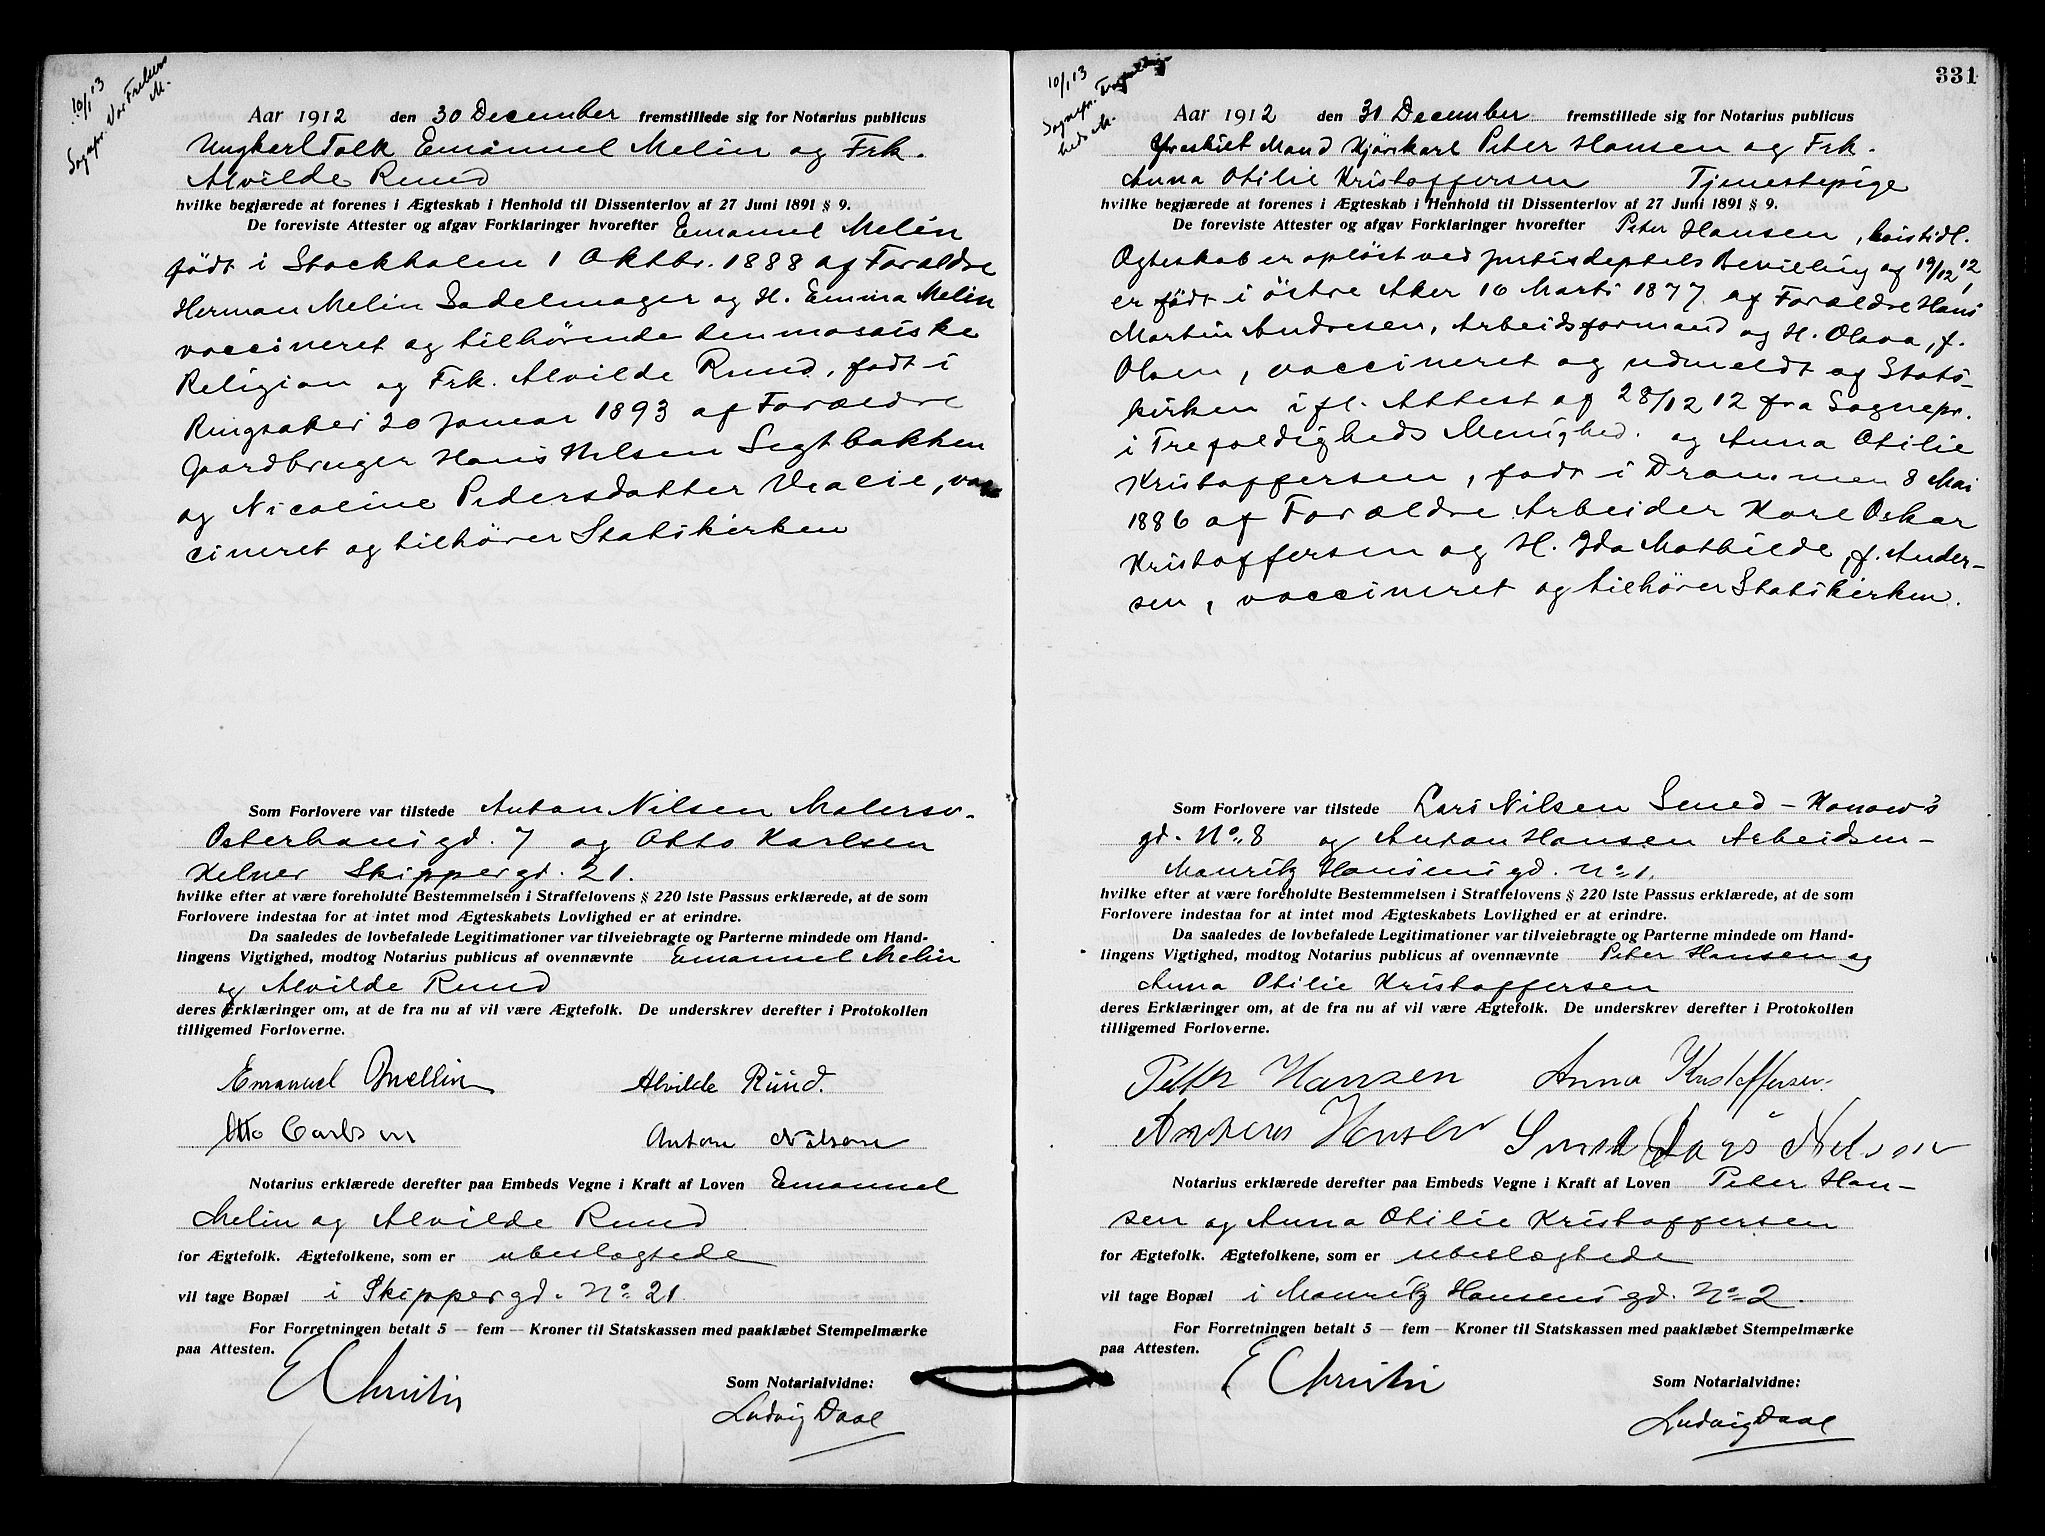 10/1 13
Sognepr. Vor Frelsers
M.
Aar 1912 den 30 December fremstillede sig for Notarius publicus
Ungkarl Tolk Emanuel Melin og Frk.
Alvilde Ruud
hvilke begjærede at forenes i Ægteskab i Henhold til Dissenterlov af 27 Juni 1891 § 9.
De foreviste Attester og afgav Forklaringer hvorefter Emanuel Melin
født i Stockholm 1 Oktbr. 1888 af Forældre
Herman Melin Sadelmager og H. Emma Melin
vaccineret og tilhørende den mosaiske
Religion og Frk. Alvilde Ruud, født i
Ringsaker 20 Januar 1893 af Forældre
Gaardbruger Hans Nilsen Segtbakken
og Nicoline Pedersdatter, vac
cineret og tilhører Statskirken
Som Forlovere var tilstede Anton Nilsen Malersv.
Osterhausgd. 7 og Otto Karlsen
Kelner Skippergd. 21.
hvilke efter at være foreholdte Bestemmelsen i Straffelovens § 220 1ste Passus erklærede, at de som
Forlovere indestaa for at intet mod Ægteskabets Lovlighed er at erindre.
Da saaledes de lovbefalede Legitimationer var tilveiebragte og Parterne mindede om Hand-
lingens Vigtighed, modtog Notarius publicus af ovennævnte Emanuel Melin
og Alvilde Ruud
deres Erklæringer om, at de fra nu af vil være Ægtefolk. De underskrev derefter i Protokollen
tilligemed Forloverne.
Emanuel Mellin Alvilde Ruud.
Otto Carlson Anton Nilsen
Notarius erklærede derefter paa Embeds Vegne i Kraft af Loven Emanuel
Melin og Alvilde Ruud
for Ægtefolk. Ægtefolkene, som er ubeslægtede
vil tage Bopæl i Skippergd. No 21
For Forretningen betalt 5 — fem — Kroner til Statskassen med paaklæbet Stempelmærke
paa Attesten.
E Christin
Som Notarialvidne:
Ludvig Daae
331
10/1 13
Sognepr. Trefoldig-
heds M.
Aar 1912 den 31 December fremstillede sig for Notarius publicus
fraskilt Mand Kjørekarl Peter Hansen og Frk.
Anna Otilie Kristoffersen Tjenestepige
hvilke begjærede at forenes i Ægteskab i Henhold til Dissenterlov af 27 Juni 1891 § 9.
De foreviste Attester og afgav Forklaringer hvorefter Peter Hansen, hvis tidl.
Ægteskab er opløst ved Justisdeptets Bevilling af 19/12 12,
er født i østre Aker 16 Marts 1877 af Forældre Hans
Martin Andresen, Arbeidsformand og H. Olava, f.
Olsen, vaccineret og udmeldt af Stats-
kirken ifl. Attest af 28/12 12 fra Sognepr.
i Trefoldigheds Menighed. og Anna Otilie
Kristoffersen, født i Drammen 8 Mai
1886 af Forældre Arbeider Karl Oskar
Kristoffersen og H. Ida Mathilde, f. Ander-
sen, vaccineret og tilhører Statskirken.
Som Forlovere var tilstede Lars Nilsen Smed - Konows
gd. No. 8 og Anton Hansen Arbeidsm-
Mauritz Hansensgd. No 1.
hvilke efter at være foreholdte Bestemmelsen i Straffelovens § 220 1ste Passus erklærede, at de som
Forlovere indestaa for at intet mod Ægteskabets Lovlighed er at erindre.
Da saaledes de lovbefalede Legitimationer var tilveiebragte og Parterne mindede om Hand-
lingens Vigtighed, modtog Notarius publicus af ovennævnte Peter Hansen og
Anna Otilie Kristoffersen
deres Erklæringer om, at de fra nu af vil være Ægtefolk. De underskrev derefter i Protokollen
tilligemed Forloverne.
Peter Hansen Anna Kristoffersen.
Hansen Smed Lars Nilsen
Notarius erklærede derefter paa Embeds Vegne i Kraft af Loven Peter Han-
sen og Anna Otilie Kristoffersen
for Ægtefolk. Ægtefolkene, som er ubeslægtede
vil tage Bopæl i Mauritz Hansensgd. No 2.
For Forretningen betalt 5 — fem — Kroner til Statskassen med paaklæbet Stempelmærke
paa Attesten.
E Christin
Som Notarialvidne:
Ludvig Daae